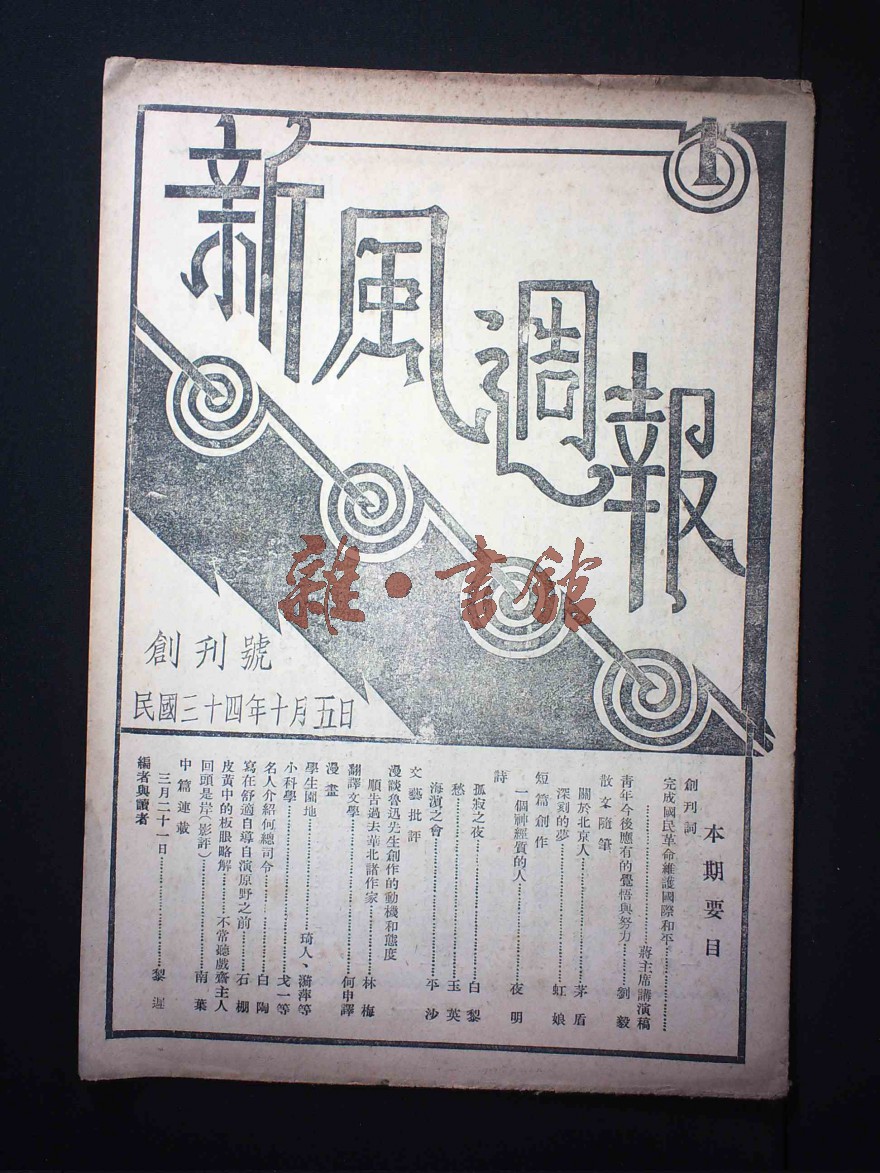 1
新風週報
雜·書館
創刊號
民國三十四年十月五日
本期要目
創刊詞
完成國民革命維護國際和平……………
……………蔣主席講演稿
青年今後應有的覺悟與努力………劉毅
散文隨筆
關於北京人……………茅盾
深刻的夢……………虹娘
短篇創作
一個神經質的人……………夜明
詩
孤寂之夜……………白黎
愁……………玉英
海濱之會……………平沙
文藝批評
漫談魯迅先生創作的動機和態度
順告過去華北諸作家………林梅
翻譯文學……………何申譯
漫畫
學生園地……………琦人、漪萍等
小科學……………戈一等
名人介紹何總司令………白陶
寫在舒適自導自演原野之前………石棚
皮黃中的板眼略解………不常聽戲齋主人
回頭是岸(影評)……………南葉
中篇連載
三月二十一日……………黎遲
編者與讀者